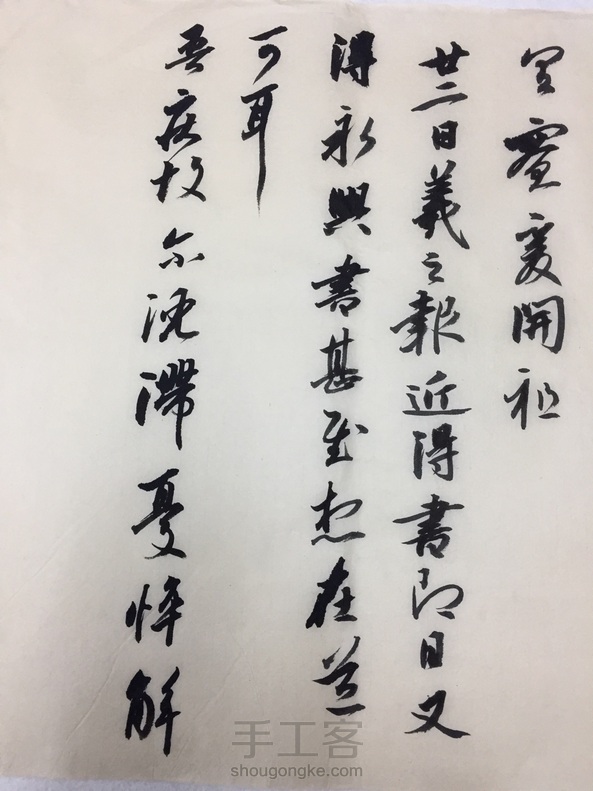 開祖
廿二日羲之報近得書即日又
得永興書甚想在道
可耳
吾疾故尔沈滯憂悴解
手工客
shougongke.com